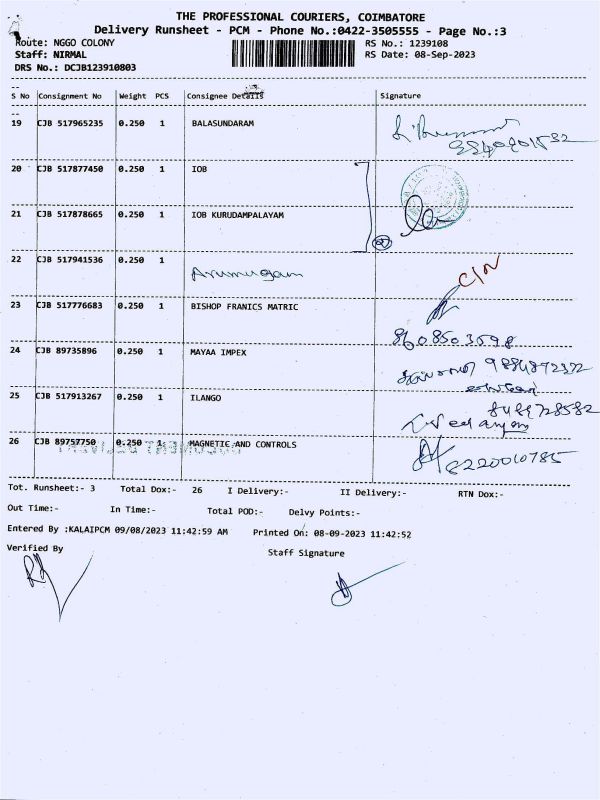 THE PROFESSIONAL COURIERS, COIMBATORE
Delivery Runsheet - PCM - Phone No.:0422-3505555 - Page No.:3
Route: NGGO COLONY RS No.: 1239108
Staff: NIRMAL RS Date: 08-Sep-2023
DRS No.: DCJB123910803
S No Consignment No Weight PCS Consignee Details Signature
19 CJB 517965235 0.250 1 BALASUNDARAM
20 CJB 517877450 0.250 1 IOB
21 CJB 517878665 0.250 1 IOB KURUDAMPALAYAM
22 CJB 517941536 0.250 1 Arumugam
C/N
23 CJB 517776683 0.250 1 BISHOP FRANICS MATRIC
8608503598
24 CJB 89735896 0.250 1 MAYAA IMPEX
25 CJB 517913267 0.250 1 ILANGO
26 CJB 89757750 0.250 1 MAGNETIC AND CONTROLS
8220010785
Tot. Runsheet:- 3 Total Dox:- 26 I Delivery:- II Delivery:- RTN Dox:-
Out Time:- In Time:- Total POD:- Delvy Points:-
Entered By :KALAIPCM 09/08/2023 11:42:59 AM Printed On: 08-09-2023 11:42:52
Verified By Staff Signature